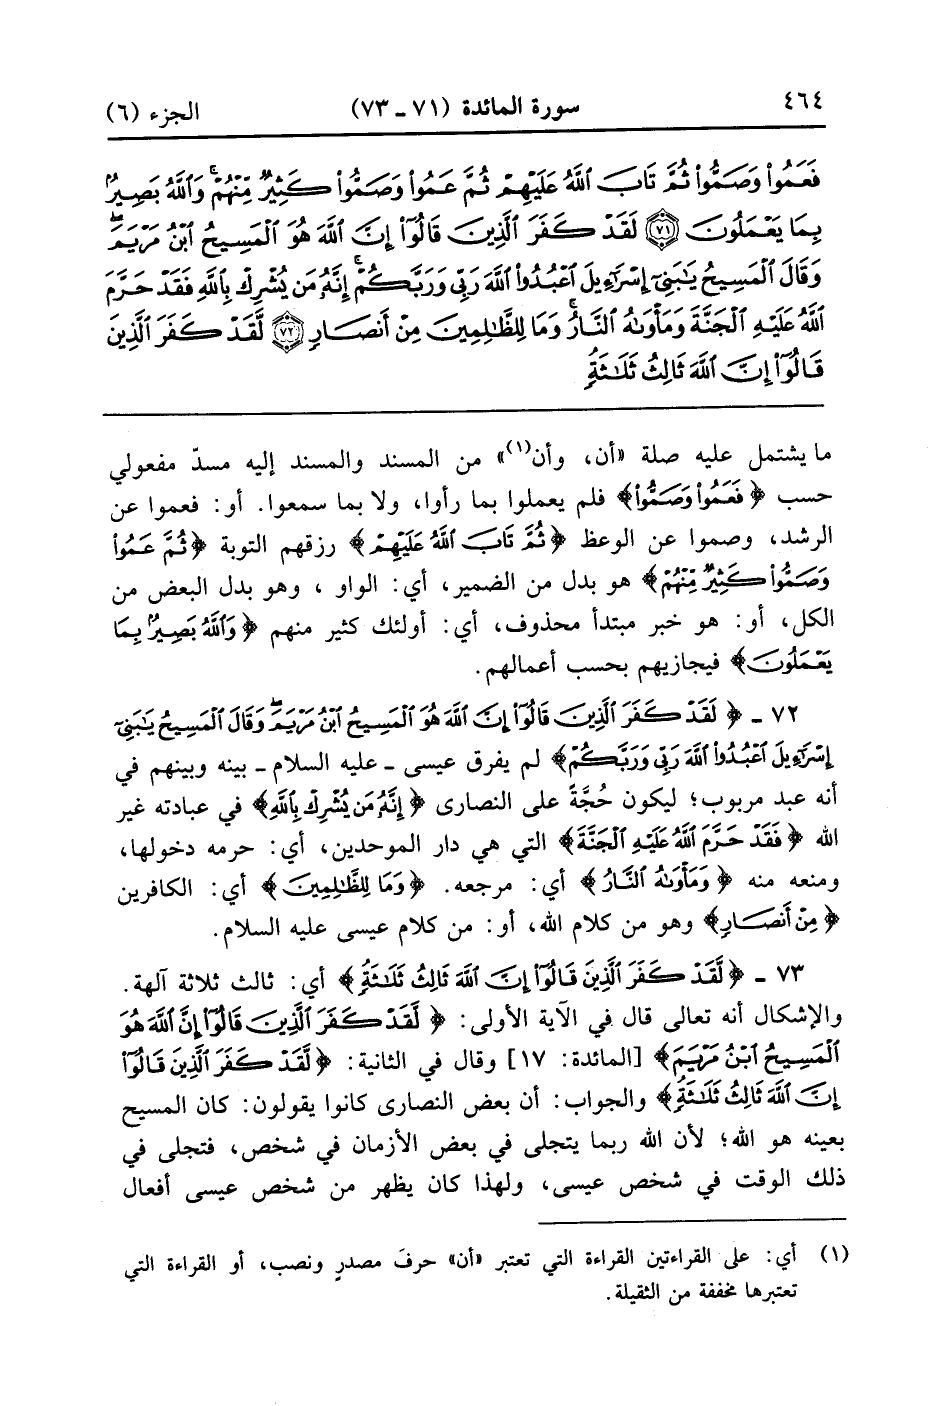 ٤٦٤
سورة المائدة (٧١ - ٧٣)
الجزء (٦)
فَعَمُوا۟ وَصَمُّوا۟ ثُمَّ تَابَ ٱللَّهُ عَلَيْهِمْ ثُمَّ عَمُوا۟ وَصَمُّوا۟ كَثِيرٌ مِّنْهُمْ ۚ وَٱللَّهُ بَصِيرٌۢ
بِمَا يَعْمَلُونَ ﴿٧١﴾ لَقَدْ كَفَرَ ٱلَّذِينَ قَالُوٓا۟ إِنَّ ٱللَّهَ هُوَ ٱلْمَسِيحُ ٱبْنُ مَرْيَمَ ۖ
وَقَالَ ٱلْمَسِيحُ يَٰبَنِىٓ إِسْرَٰٓءِيلَ ٱعْبُدُوا۟ ٱللَّهَ رَبِّى وَرَبَّكُمْ ۚ إِنَّهُۥ مَن يُشْرِكْ بِٱللَّهِ فَقَدْ حَرَّمَ
ٱللَّهُ عَلَيْهِ ٱلْجَنَّةَ وَمَأْوَىٰهُ ٱلنَّارُ ۚ وَمَا لِلظَّٰلِمِينَ مِنْ أَنصَارٍ ﴿٧٢﴾ لَّقَدْ كَفَرَ ٱلَّذِينَ
قَالُوٓا۟ إِنَّ ٱللَّهَ ثَالِثُ ثَلَٰثَةٍ ۘ
ما يشتمل عليه صلة «أن، وأن(١)» من المسند والمسند إليه مسدّ مفعولي
حسب ﴿فَعَمُوا۟ وَصَمُّوا۟﴾ فلم يعملوا بما رأوا، ولا بما سمعوا. أو: فعموا عن
الرشد، وصموا عن الوعظ ﴿ثُمَّ تَابَ ٱللَّهُ عَلَيْهِمْ﴾ رزقهم التوبة ﴿ثُمَّ عَمُوا۟
وَصَمُّوا۟ كَثِيرٌ مِّنْهُمْ﴾ هو بدل من الضمير، أي: الواو، وهو بدل البعض من
الكل، أو: هو خبر مبتدأ محذوف، أي: أولئك كثير منهم ﴿وَٱللَّهُ بَصِيرٌۢ بِمَا
يَعْمَلُونَ﴾ فيجازيهم بحسب أعمالهم.
٧٢ - ﴿لَقَدْ كَفَرَ ٱلَّذِينَ قَالُوٓا۟ إِنَّ ٱللَّهَ هُوَ ٱلْمَسِيحُ ٱبْنُ مَرْيَمَ ۖ وَقَالَ ٱلْمَسِيحُ يَٰبَنِىٓ
إِسْرَٰٓءِيلَ ٱعْبُدُوا۟ ٱللَّهَ رَبِّى وَرَبَّكُمْ﴾ لم يفرق عيسى - عليه السلام - بينه وبينهم في
أنه عبد مربوب؛ ليكون حُجَّةً على النصارى ﴿إِنَّهُۥ مَن يُشْرِكْ بِٱللَّهِ﴾ في عبادته غير
الله ﴿فَقَدْ حَرَّمَ ٱللَّهُ عَلَيْهِ ٱلْجَنَّةَ﴾ التي هي دار الموحدين، أي: حرمه دخولها،
ومنعه منه ﴿وَمَأْوَىٰهُ ٱلنَّارُ﴾ أي: مرجعه. ﴿وَمَا لِلظَّٰلِمِينَ﴾ أي: الكافرين
﴿مِنْ أَنصَارٍ﴾ وهو من كلام الله، أو: من كلام عيسى عليه السلام.
٧٣ - ﴿لَّقَدْ كَفَرَ ٱلَّذِينَ قَالُوٓا۟ إِنَّ ٱللَّهَ ثَالِثُ ثَلَٰثَةٍ﴾ أي: ثالث ثلاثة آلهة.
والإشكال أنه تعالى قال في الآية الأولى: ﴿لَقَدْ كَفَرَ ٱلَّذِينَ قَالُوٓا۟ إِنَّ ٱللَّهَ هُوَ
ٱلْمَسِيحُ ٱبْنُ مَرْيَمَ﴾ [المائدة: ١٧] وقال في الثانية: ﴿لَّقَدْ كَفَرَ ٱلَّذِينَ قَالُوٓا۟
إِنَّ ٱللَّهَ ثَالِثُ ثَلَٰثَةٍ﴾ والجواب: أن بعض النصارى كانوا يقولون: كان المسيح
بعينه هو الله؛ لأن الله ربما يتجلى في بعض الأزمان في شخص، فتجلى في
ذلك الوقت في شخص عيسى، ولهذا كان يظهر من شخص عيسى أفعال
(١) أي: على القراءتين القراءة التي تعتبر «أن» حرفَ مصدرٍ ونصب، أو القراءة التي
تعتبرها مخففة من الثقيلة.